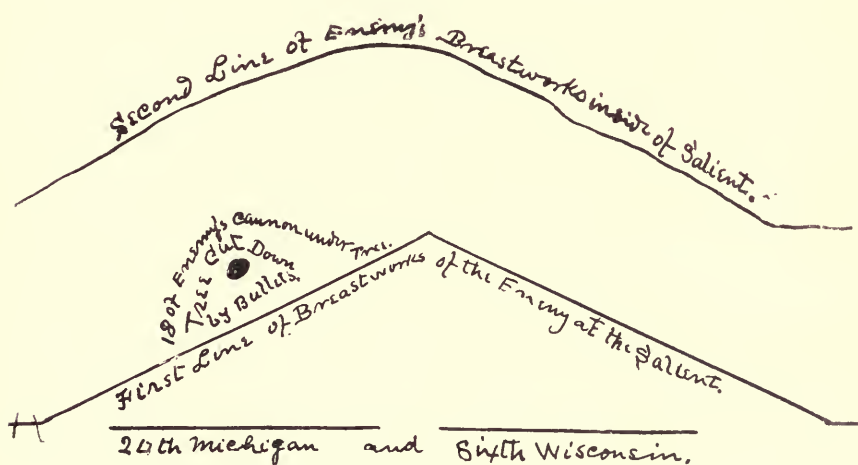 Second Line of Enemy's Breastworks inside of Salient.
18 of Enemy's cannon under Tree.
Tree Cut Down
by Bullets.
First Line of Breastworks of the Enemy at the Salient.
24th Michigan and Sixth Wisconsin.